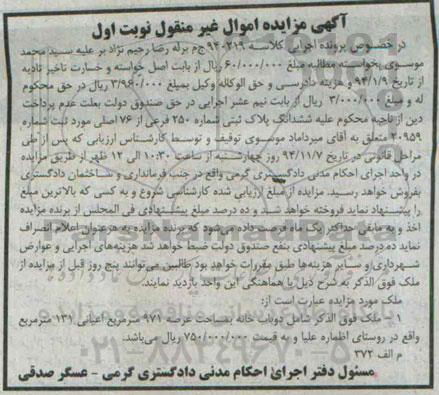 آگهی مزایده اموال غیر منقول نوبت اول
در خصوص پرونده اجرایی کلاسه ۹۴۰۲۱۹ ج م برله رضا رحیم نژاد بر علیه سید محمد
موسوی بخواسته مطالبه مبلغ ۶۰/۰۰۰/۰۰۰ ریال از بابت اصل خواسته و خسارت تاخیر تادیه
از تاریخ ۹۴/۱/۹ و هزینه دادرسی و حق الوکاله وکیل بمبلغ ۳/۹۶۰/۰۰۰ ریال در حق محکوم
له و مبلغ ۳/۰۰۰/۰۰۰ ریال از بابت نیم عشر اجرایی در حق صندوق دولت بعلت عدم پرداخت
دین از ناحیه محکوم علیه ششدانگ پلاک ثبتی شماره ۲۵۰ فرعی از ۷۶ اصلی مورد ثبت شماره
۲۰۹۵۹ متعلق به آقای میرداماد موسوی توقیف و توسط کارشناس ارزیابی که پس از طی
مراحل قانونی در تاریخ ۹۴/۱۱/۷ روز چهارشنبه از ساعت ۱۰:۳۰ الی ۱۲ ظهر از طریق مزایده
در واحد اجرای احکام مدنی دادگستری گرمی واقع در جنب فرمانداری و ساختمان دادگستری
بفروش خواهد رسید. مزایده از مبلغ ارزیابی شده کارشناسی شروع و به کسی که بالاترین مبلغ
را پیشنهاد نماید فروخته خواهد شد و ده درصد مبلغ پیشنهادی فی المجلس از برنده مزایده
اخذ و به مابقی حداکثر یک ماه فرصت داده می‌شود که برنده مزایده به هر عنوان اعلام انصراف
نماید ده درصد مبلغ پیشنهادی بنفع صندوق دولت ضبط خواهد شد هزینه‌های اجرایی و عوارض
شهرداری و سایر هزینه‌ها طبق مقررات خواهد بود طالبین می‌توانند پنج روز قبل از مزایده از
ملک فوق الذکر به شرح ذیل با هماهنگی این واحد بازدید نمایند.
ملک مورد مزایده عبارت است از:
۱ - ملک فوق الذکر شامل دوباب خانه بمساحت عرصه ۹۷۱ مترمربع اعیانی ۱۳۱ مترمربع
واقع در روستای اظماره علیا و به قیمت ۷۵۰/۰۰۰/۰۰۰ ریال می‌باشد.
م الف ۳۷۲
مسئول دفتر اجرای احکام مدنی دادگستری گرمی - عسگر صدقی
۰۲۱-۸۸۳۴۹۶۷۰-۵